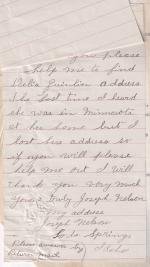 you please
help me to find
Delia Quinlian address
The last time I heard
she was in Minnesota
at her home but I
lost her address so
if you will please
help me out I will
thank you very much
Yours truly Joseph Nelson
My address
Joseph Nelson
Soda Springs
Idaho
Please answer by
Return mail